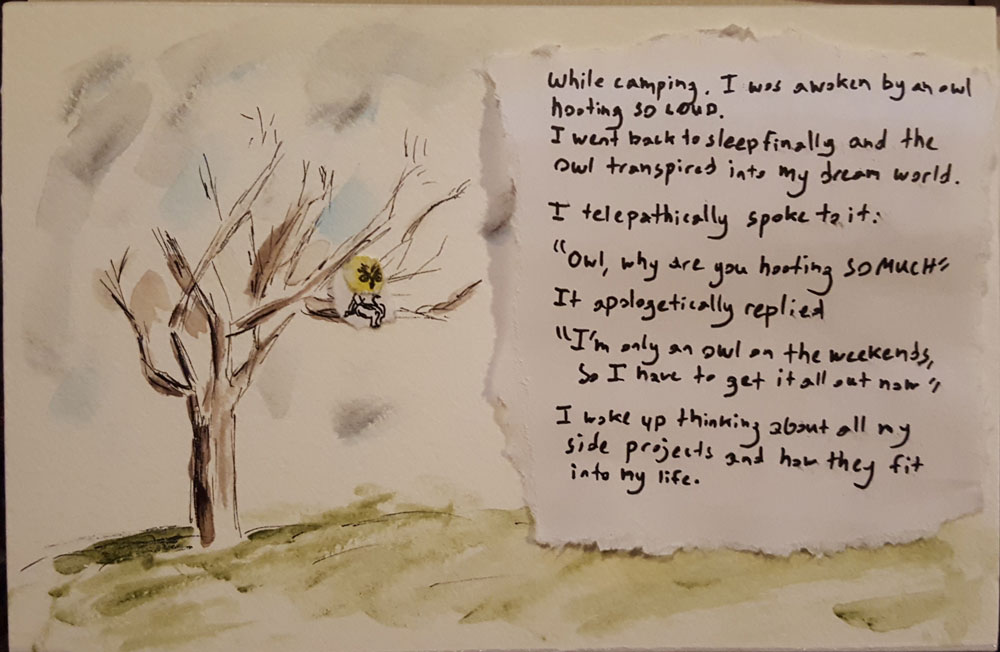 While camping. I was awoken by an owl
hooting SO LOUD.
I went back to sleep finally and the
owl transpired into my dream world.
I telepathically spoke to it:
"Owl, why are you hooting SO MUCH"
It apologetically replied
"I'm only an owl on the weekends,
So I have to get it all out now"
I woke up thinking about all my
side projects and how they fit
into my life.